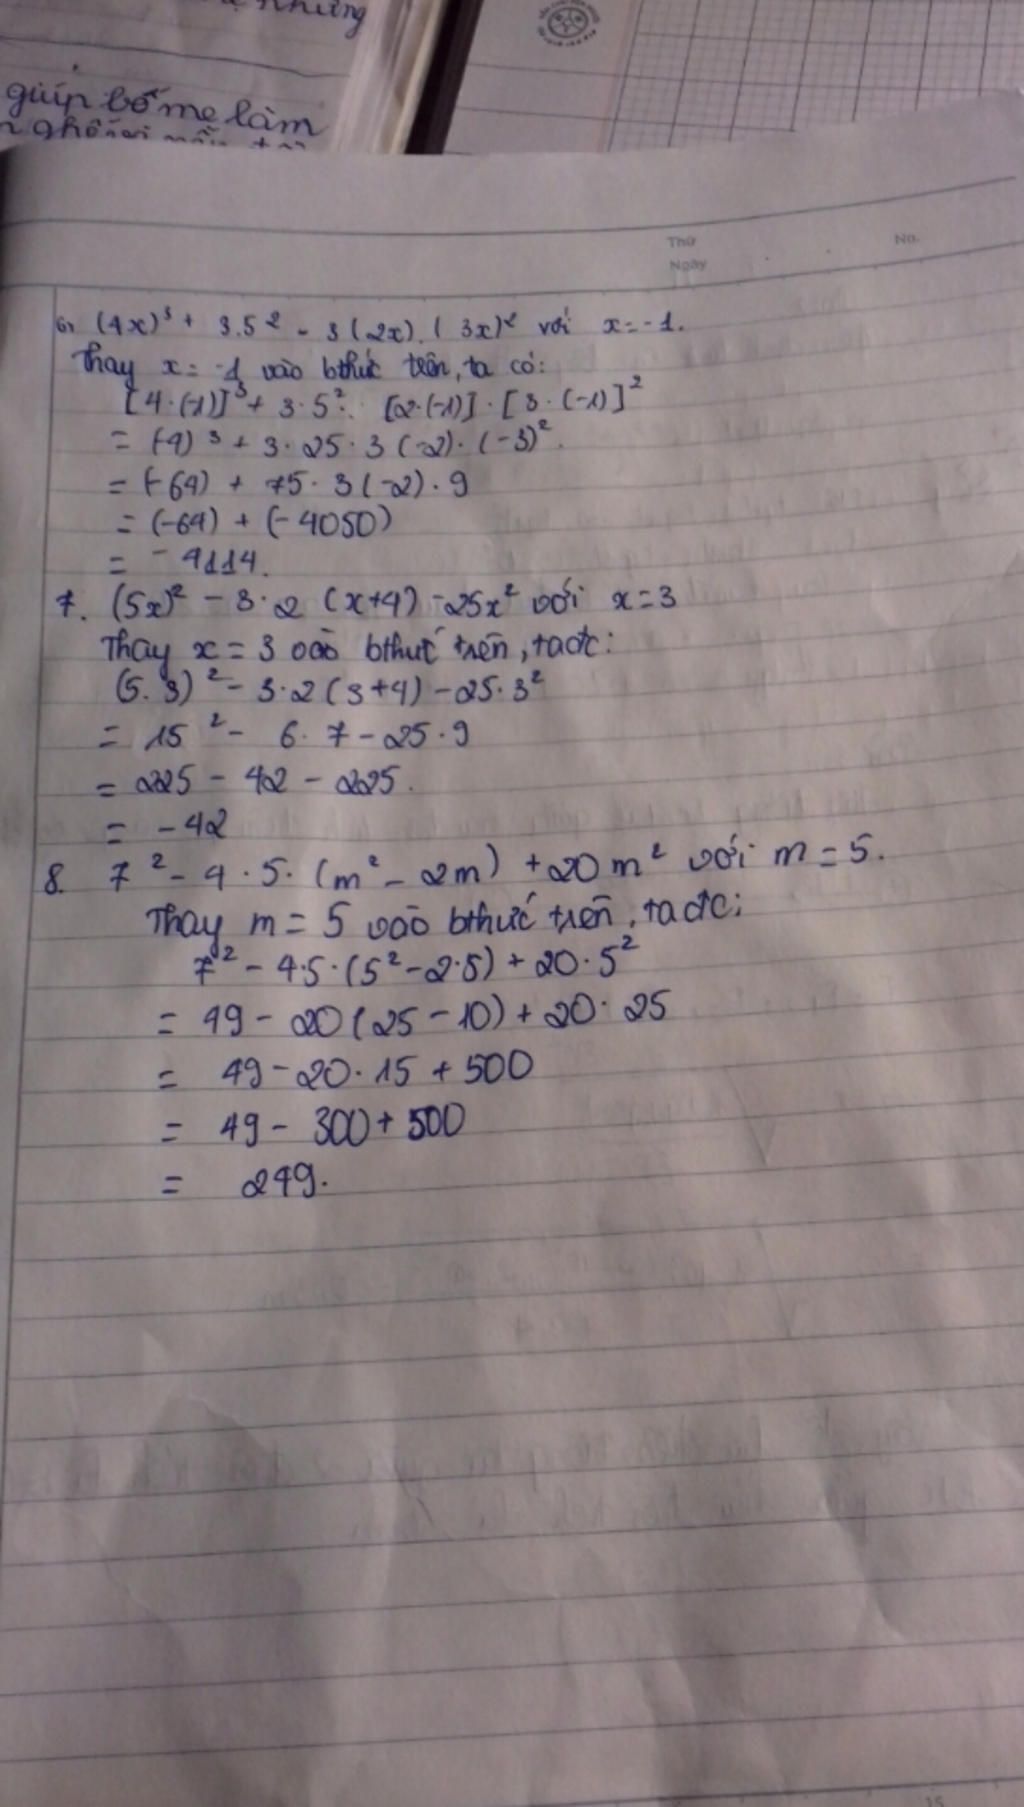 những
giúp bố mẹ làm
Thứ
No.
Ngày
6, (4x)³ + 3.5² - 3(2x).(3x)² với x=-1.
Thay x = -1 vào bthức trên, ta có:
[4.(-1)]³ + 3.5². [2.(-1)].[3.(-1)]²
= (-4)³ + 3.25.3(-2).(-3)².
= (-64) + 75.3(-2).9
= (-64) + (-4050)
= -4114.
7. (5x)² - 3.2 (x+4) - 25x² với x=3
Thay x = 3 vào bthức trên, ta đc:
(5.3)² - 3.2(3+4) - 25.3²
= 15² - 6.7 - 25.9
= 225 - 42 - 225.
= -42
8. 7² - 4.5.(m² - 2m) + 20m² với m = 5.
Thay m = 5 vào bthức trên, ta đc:
7² - 4.5.(5² - 2.5) + 20.5²
= 49 - 20(25 - 10) + 20.25
= 49 - 20.15 + 500
= 49 - 300 + 500
= 249.
15